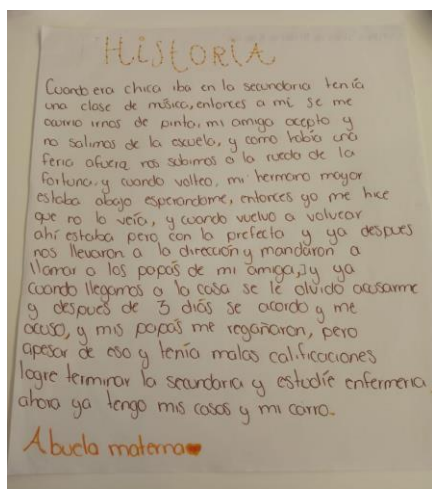 HIStORIA
Cuando era chica iba en la secundaria tenía
una clase de música, entonces a mi se me
ocurrio irnos de pinta, mi amiga acepto y
no salimos de la escuela, y como había una
feria afuera nos subimos a la rueda de la
fortuna, y cuando volteo, mi hermano mayor
estaba abajo esperandome, entonces yo me hice
que no lo veía, y cuando vuelvo a voltear
ahí estaba pero con la prefecta y ya despues
nos llevaron a la dirección y mandaron a
llamar a los papás de mi amiga, y ya
cuando llegamos a la casa se le olvido acusarme
y despues de 3 días se acordo y me
acuso, y mis papás me regañaron, pero
apesar de eso y tenía malas calificaciones
logre terminar la secundaria y estudíe enfermeria
ahora ya tengo mis casas y mi carro.
Abuela materna